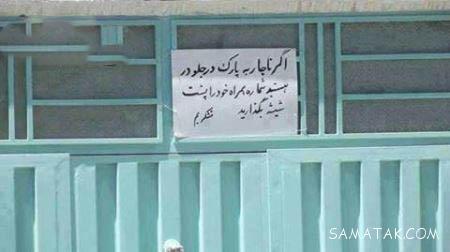 اگر ناچار به پارک در جلو در
هستید شماره همراه خود را پشت
شیشه بگذارید متشکریم
SAMATAK.COM